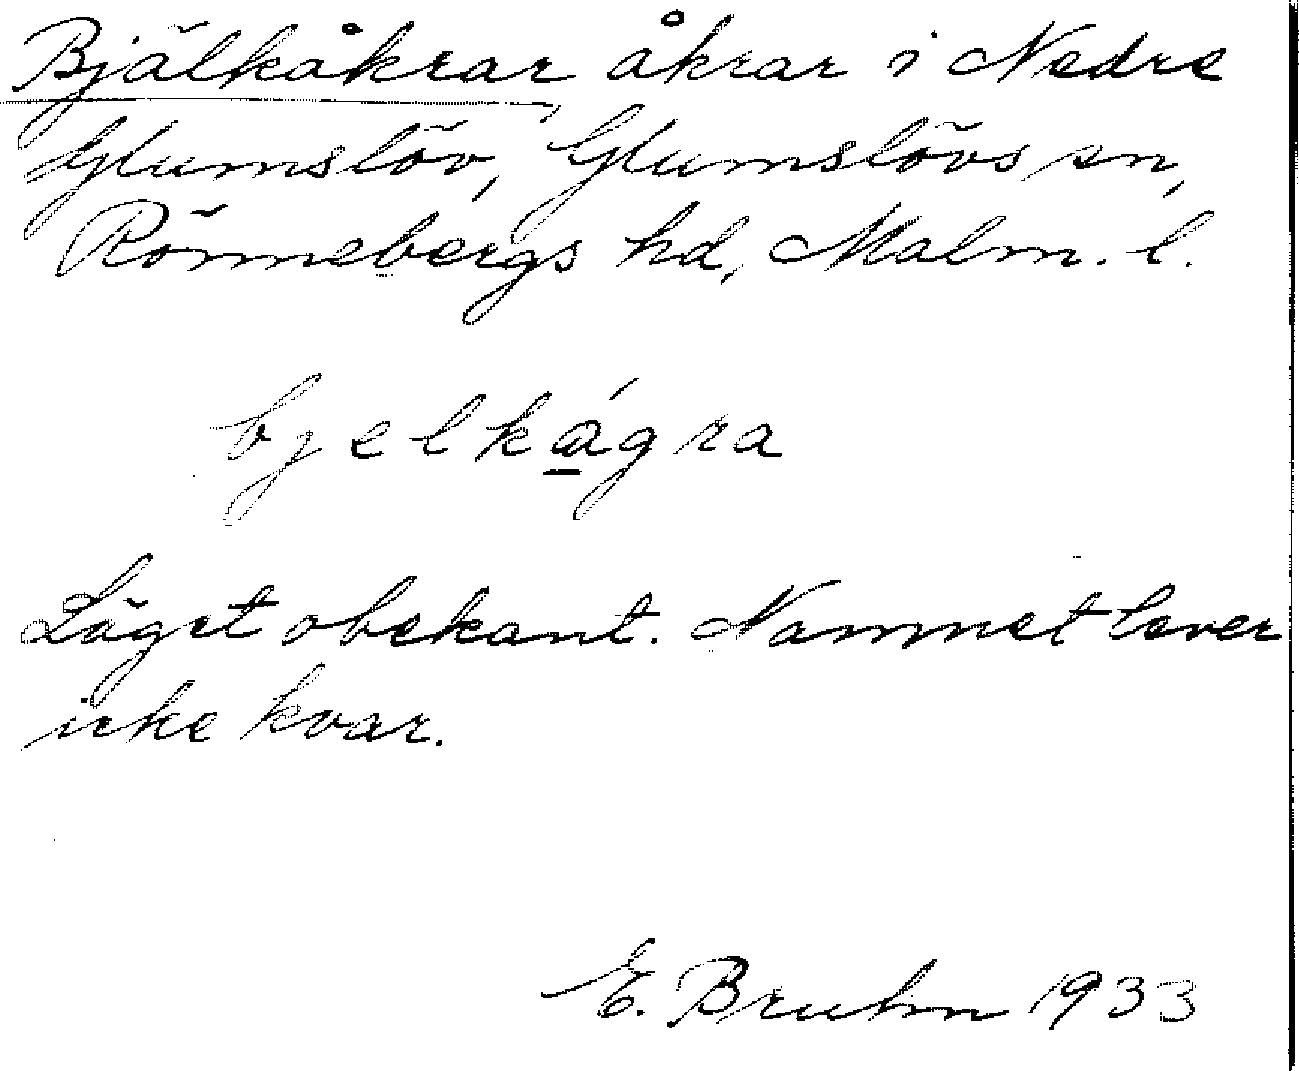 Bjälkåkrar, åkrar i Nedre
Glumslöv, Glumslövs sn,
Rönnebergs hd, Malm. l.
bjelkágra
Läget obekant. Namnet lever
icke kvar.
E. Bruhn 1933